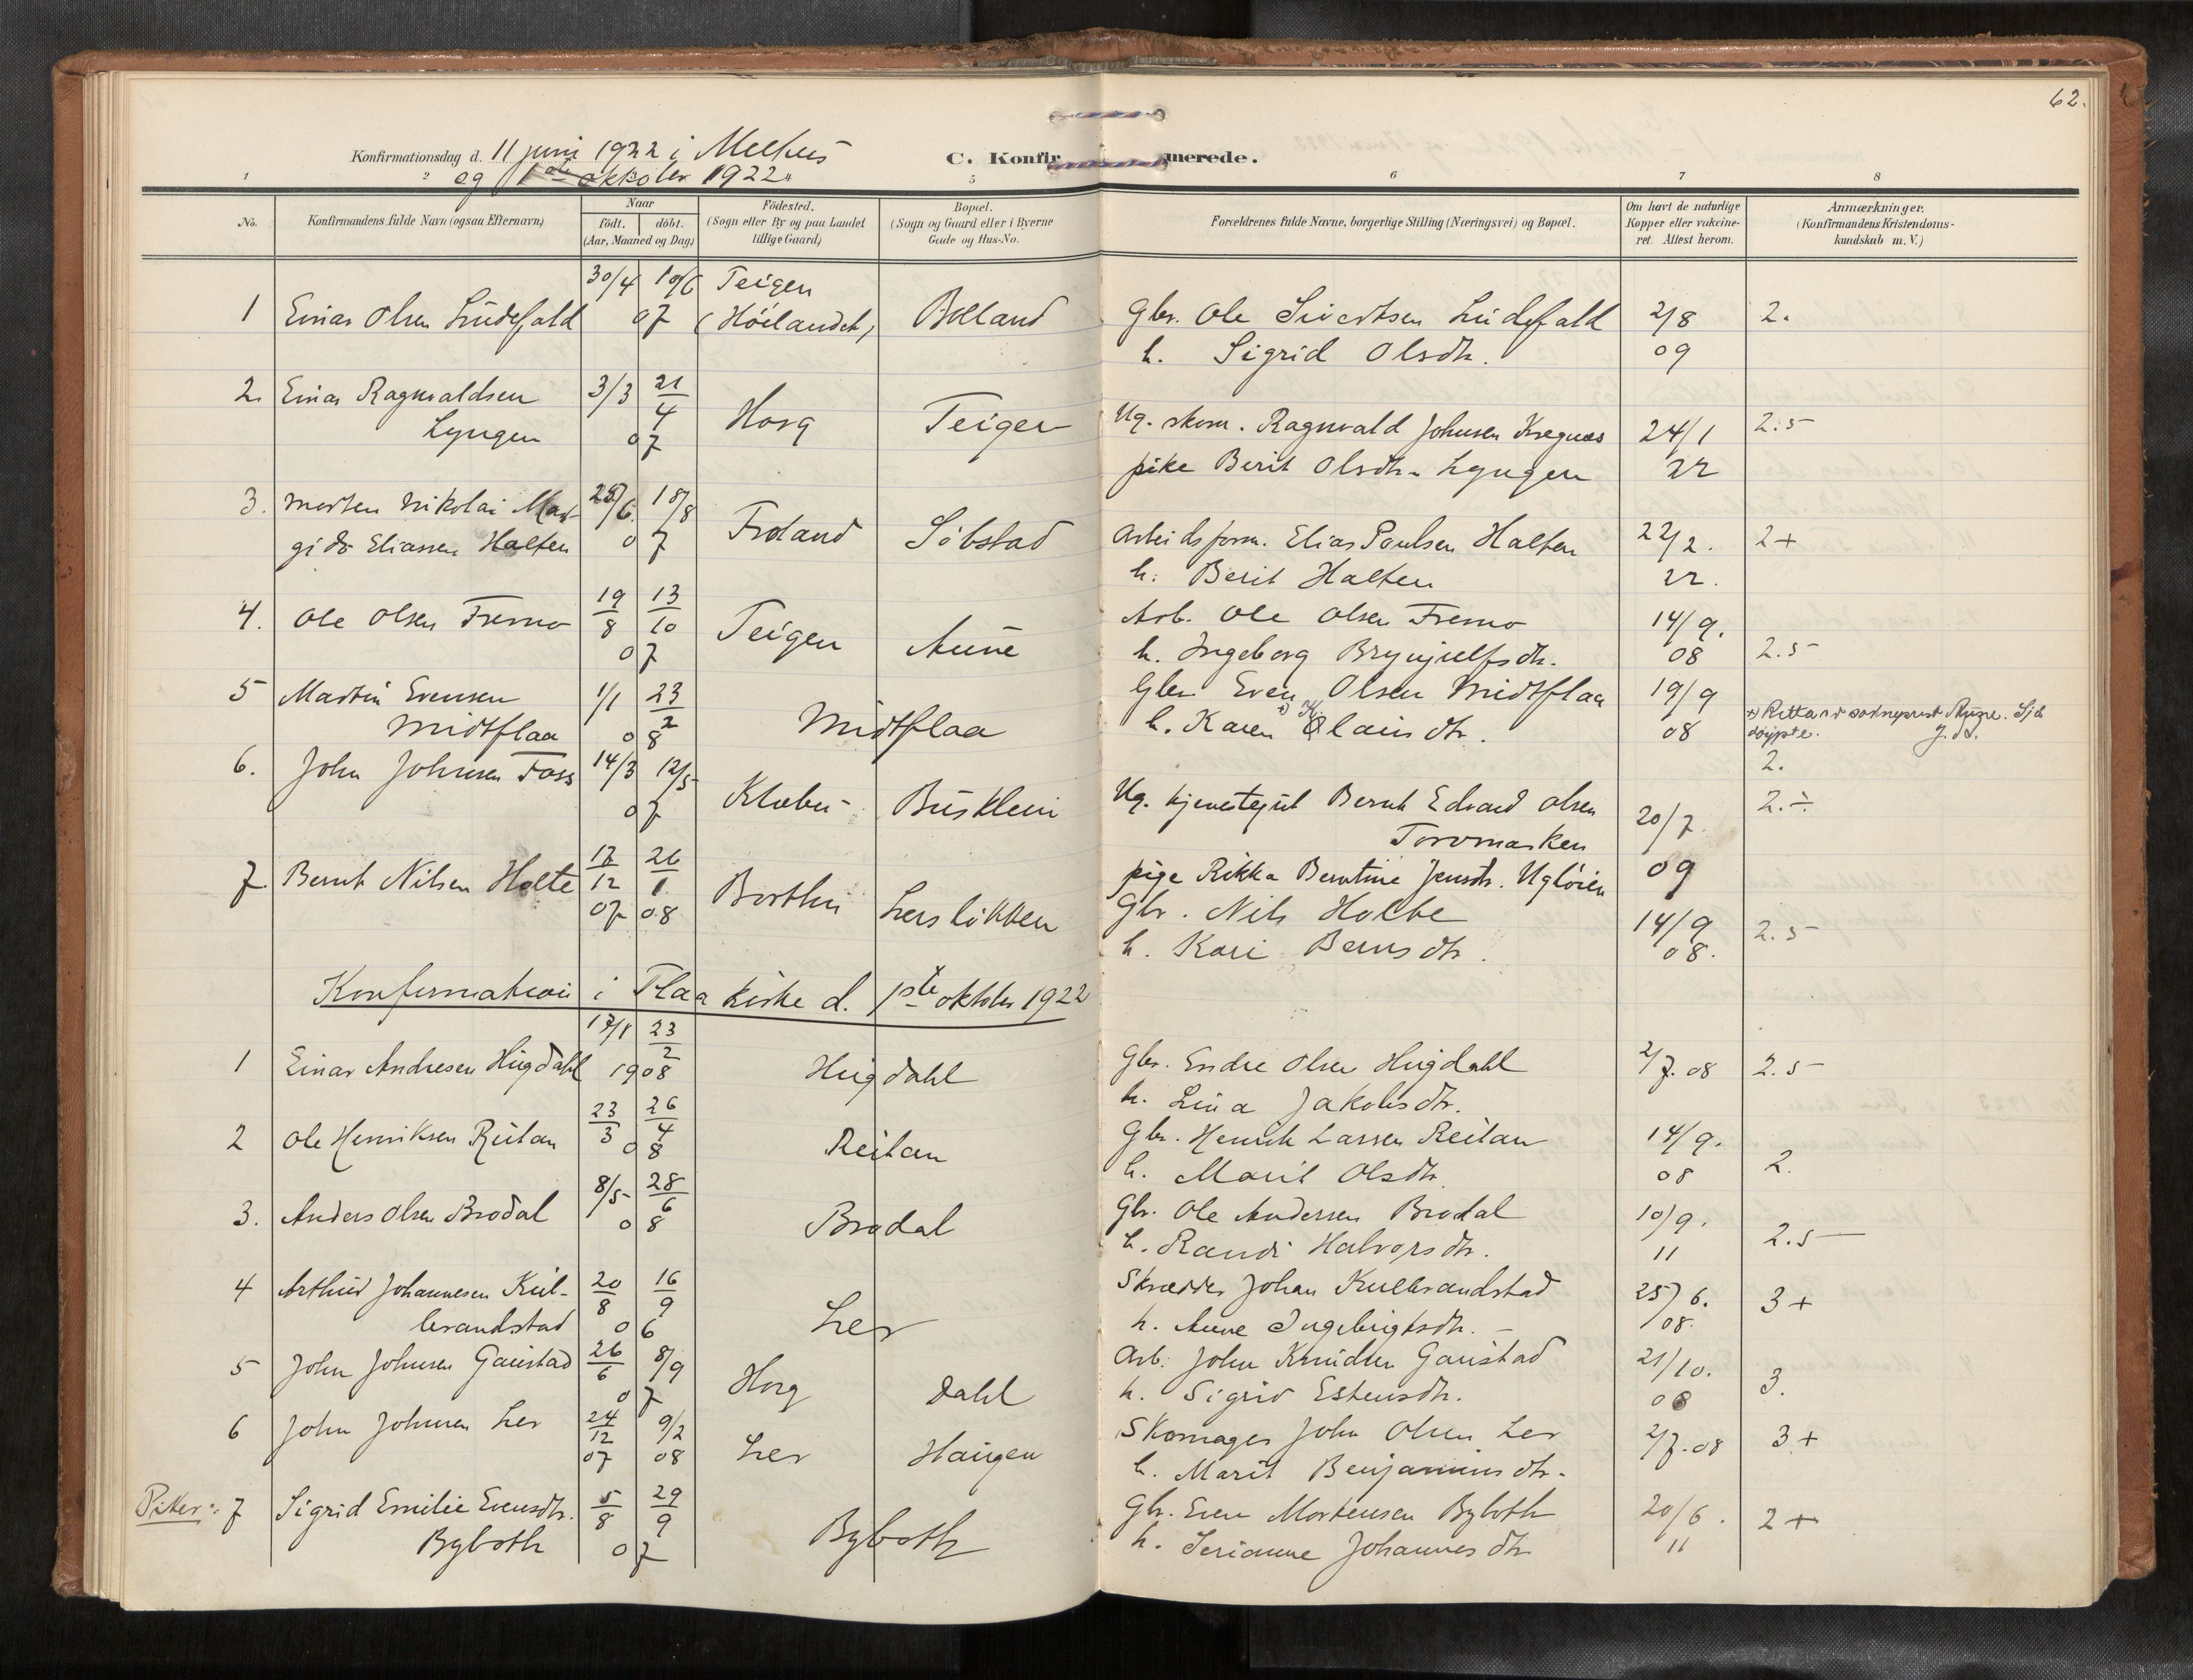 62.
Konfirmationsdag d. 11 juni 1922 i Melhus
og 1ste oktober 1922.
C. Konfirmerede.
1 2 5 6 7 8
No. Konfirmandens fulde Navn (ogsaa Efternavn)
Naar
födt. döbt.
(Aar, Maaned og Dag)
Födested.
(Sogn eller By og paa Landet
tillige Gaard)
Bopæl.
(Sogn og Gaard eller i Byerne
Gade og Hus-No.
Forældrenes fulde Navne, borgerlige Stilling (Næringsvei) og Bopæl.
Om havt de naturlige
Kopper eller vakcine-
ret. Attest herom.
Anmærkninger.
(Konfirmandens Kristendoms-
kundskab m. V.)
30/4 10/6 Teigen
1 Einar Olsen Lindefjald 07 (Höilandet) Bolland Gbr. Ole Sivertsen Lindefjald 2/8 2.
h. Sigrid Olsdtr. 09
2. Einar Ragnvaldsen 3/3 21/4
Lyngen 07 Horg Teigen Ug. skom. Ragnvald Johnsen Kregnes 24/1 2.5
pike Berit Olsdtr. Lyngen 22
3. Morten Nikolai Mar- 25/6 18/8
gido Eliassen Halten 07 Froland Söbstad Arbeidsform. Elias Paulsen Halten 22/2. 2+
h. Berit Halten 22.
4. Ole Olsen Fremo 19/8 13/10 Teigen Aune Arb. Ole Olsen Fremo 14/9.
07 h. Ingeborg Brynjulfsdtr. 08 2.5
5 Martin Evensen 1/1 23/2 Gbr Even Olsen Midtflaa 19/9
Midtflaa 08 Midtflaa h. Karen x) K Olainsdtr. 08 x) Retta av sokneprest
döypte.
2.
6. John Johnsen Foss 14/3 12/5
07 Klæbu Busklein Ug. tjenestegut Bernt Edvard Olsen 20/7 2.÷
Torvmarken
pige Rikka Berntine Jensdtr. Uglöien 09
7. Bernt Nilsen Holte 17/12 26/1 Borthn Lersløkken Gbr. Nils Holte 14/9 2.5
07 08 h. Kari Berns dtr. 08.
Konfirmation i Flaa kirke d. 1ste oktober 1922
17/1 23/2
1 Einar Andresen Hugdahl 1908 Hugdahl Gbr. Endre Olsen Hugdahl 2/7.08 2.5
h. Lina Jakobsdtr.
2 Ole Henriksen Reitan 23/3 26/4 Reitan Gbr. Henrik Larsen Reitan 14/9.
08 h. Marit Olsdtr. 08 2.
3. Anders Olsen Brodal 8/5 28/6 Brodal Gbr. Ole Andersen Brodal 10/9.
08 h. Randi Halvorsdtr. 11 2.5
4 Arthur Johannesen Kul- 20/8 16/9 Skrædder Johan Kulbrandstad 25/6. 3+
brandstad 06 Ler h. Anne Ingebrigtsdtr. 08.
5 John Johnsen Gaustad 26/6 8/9 Arb. John Knudsen Gaustad 21/10.
07 Horg Dahl h. Sigrid Estensdtr. 08 3.
6 John Johnsen Ler 24/12 9/2 Skomager John Olsen Ler 2/7.08 3+
07 08 Ler Haugen h. Marit Benjaminsdtr.
Piker: 7 Sigrid Emilie Evensdtr. 5/8 29/9 Gbr. Even Mortensen Byboth 20/6. 2+
Byboth 07 Byboth h. Serianne Johannesdtr 11